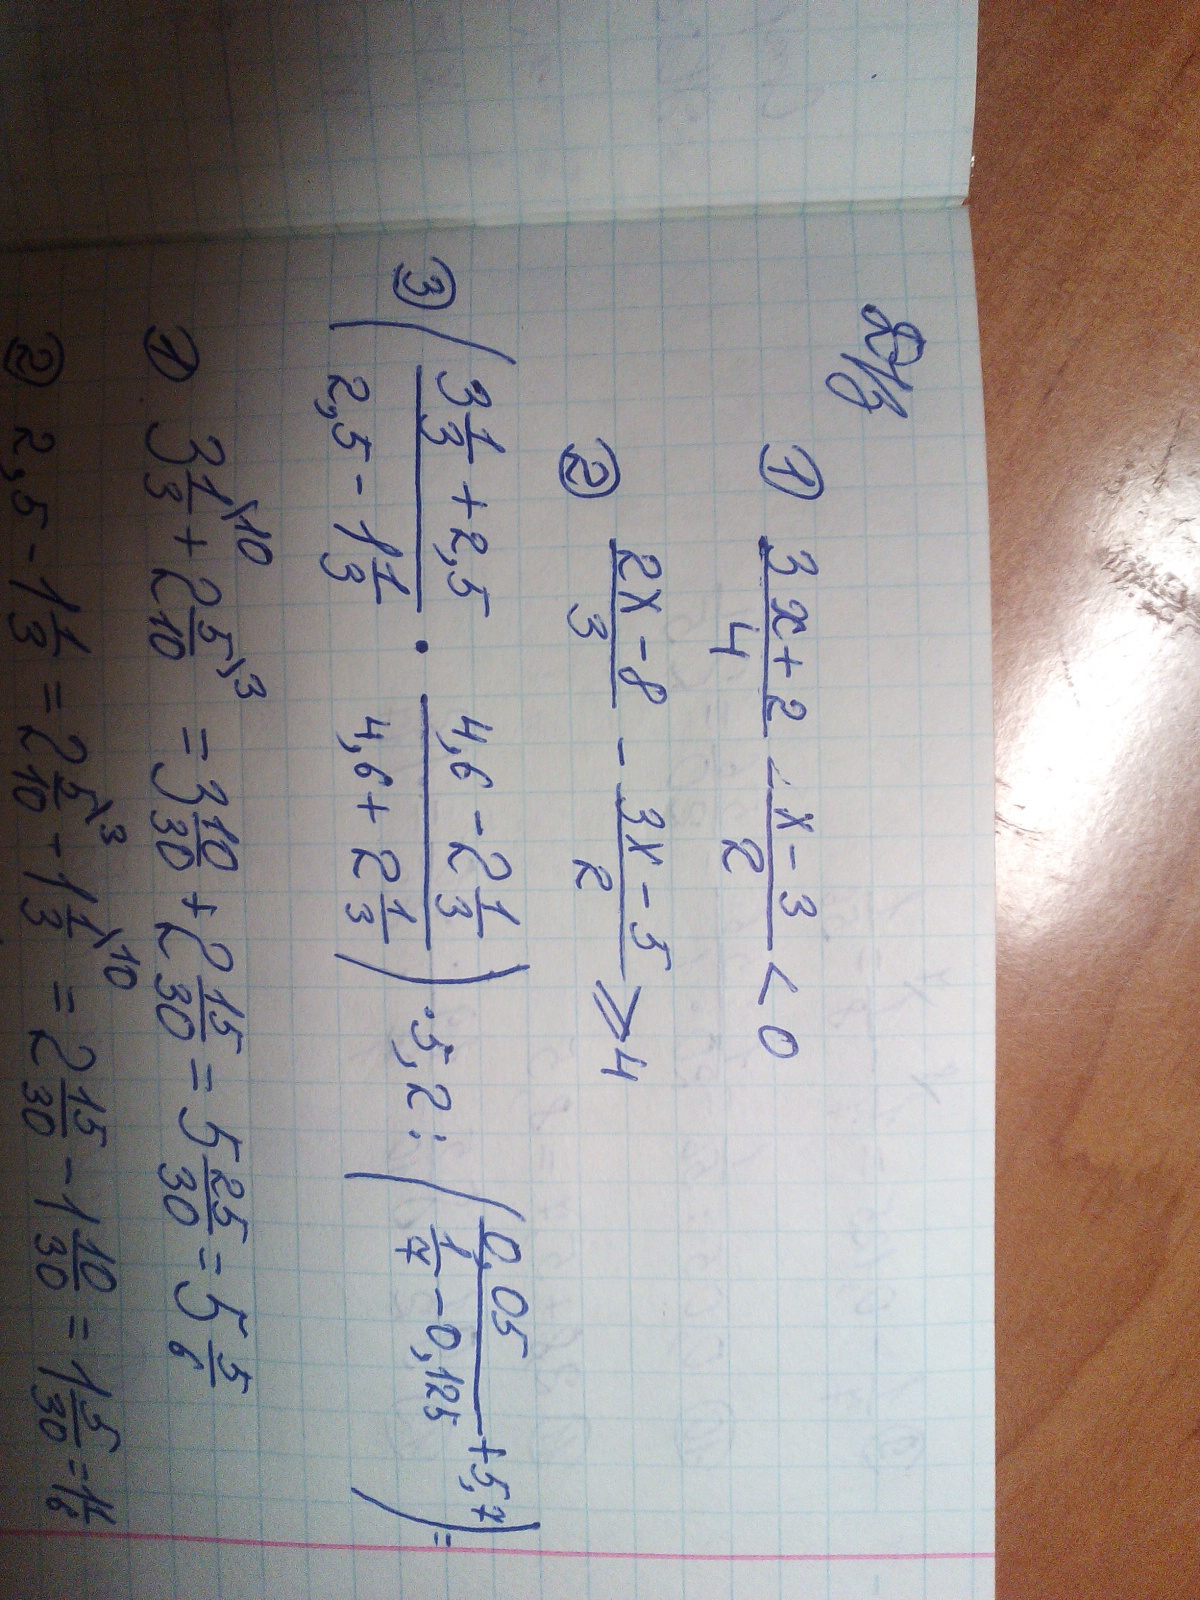 Д/з
① (3x+2)/4 - (x-3)/2 < 0
② (2x-8)/3 - (3x-5)/2 ⩾ 4
③ ((3 1/3 + 2,5)/(2,5 - 1 1/3) · (4,6 - 2 1/3)/(4,6 + 2 1/3)) · 5,2 : (0,05/(1/7 - 0,125) + 5,7) =
① 3 1/3\10 + 2 5/10\3 = 3 10/30 + 2 15/30 = 5 25/30 = 5 5/6
② 2,5 - 1 1/3 = 2 5/10\3 - 1 1/3\10 = 2 15/30 - 1 10/30 = 1 5/30 = 1 1/6